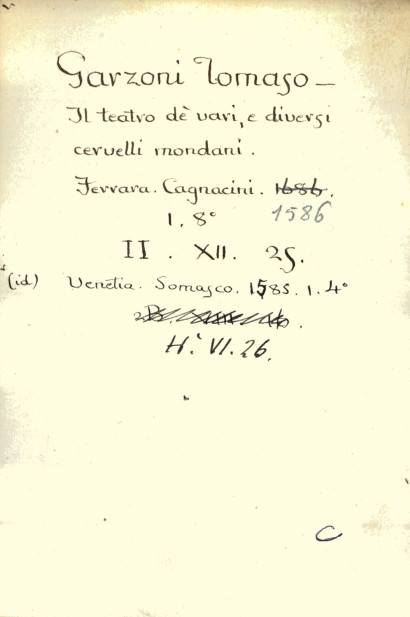 Garzoni Tomaso —
Il teatro dè vari, e diversi
cervelli mondani.
Ferrara. Cagnacini. 1686.
1586
1. 8°
II . XII. 25.
(id) Venetia. Somasco. 1585. 1. 4°
H. VI. 26.
C